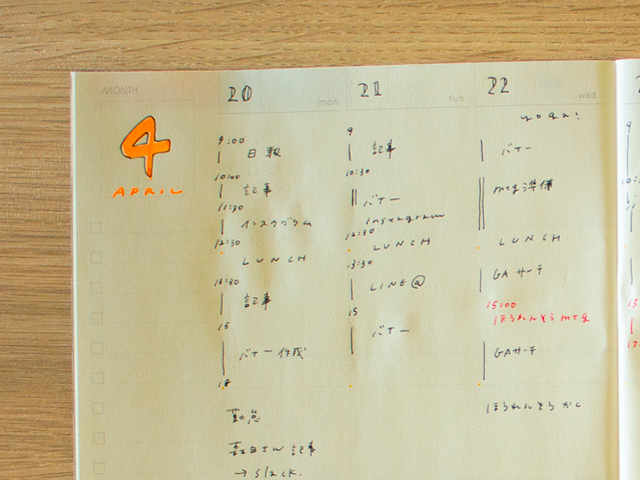 MONTH
4
APRIL
20
mon
9:00
日報
10:00
記事
11:30
インスタグラム
12:30
LUNCH
13:30
記事
15
バナー作成
18
勤怠
森田さん 記事
→ slack.
21
tue
9
記事
10:30
バナー
Instagram
12:30
LUNCH
13:30
LINE@
15
バナー
22
wed
yoga!
バナー
mtg準備
LUNCH
GAサーチ
15:00
ほうれんそうmtg
GAサーチ